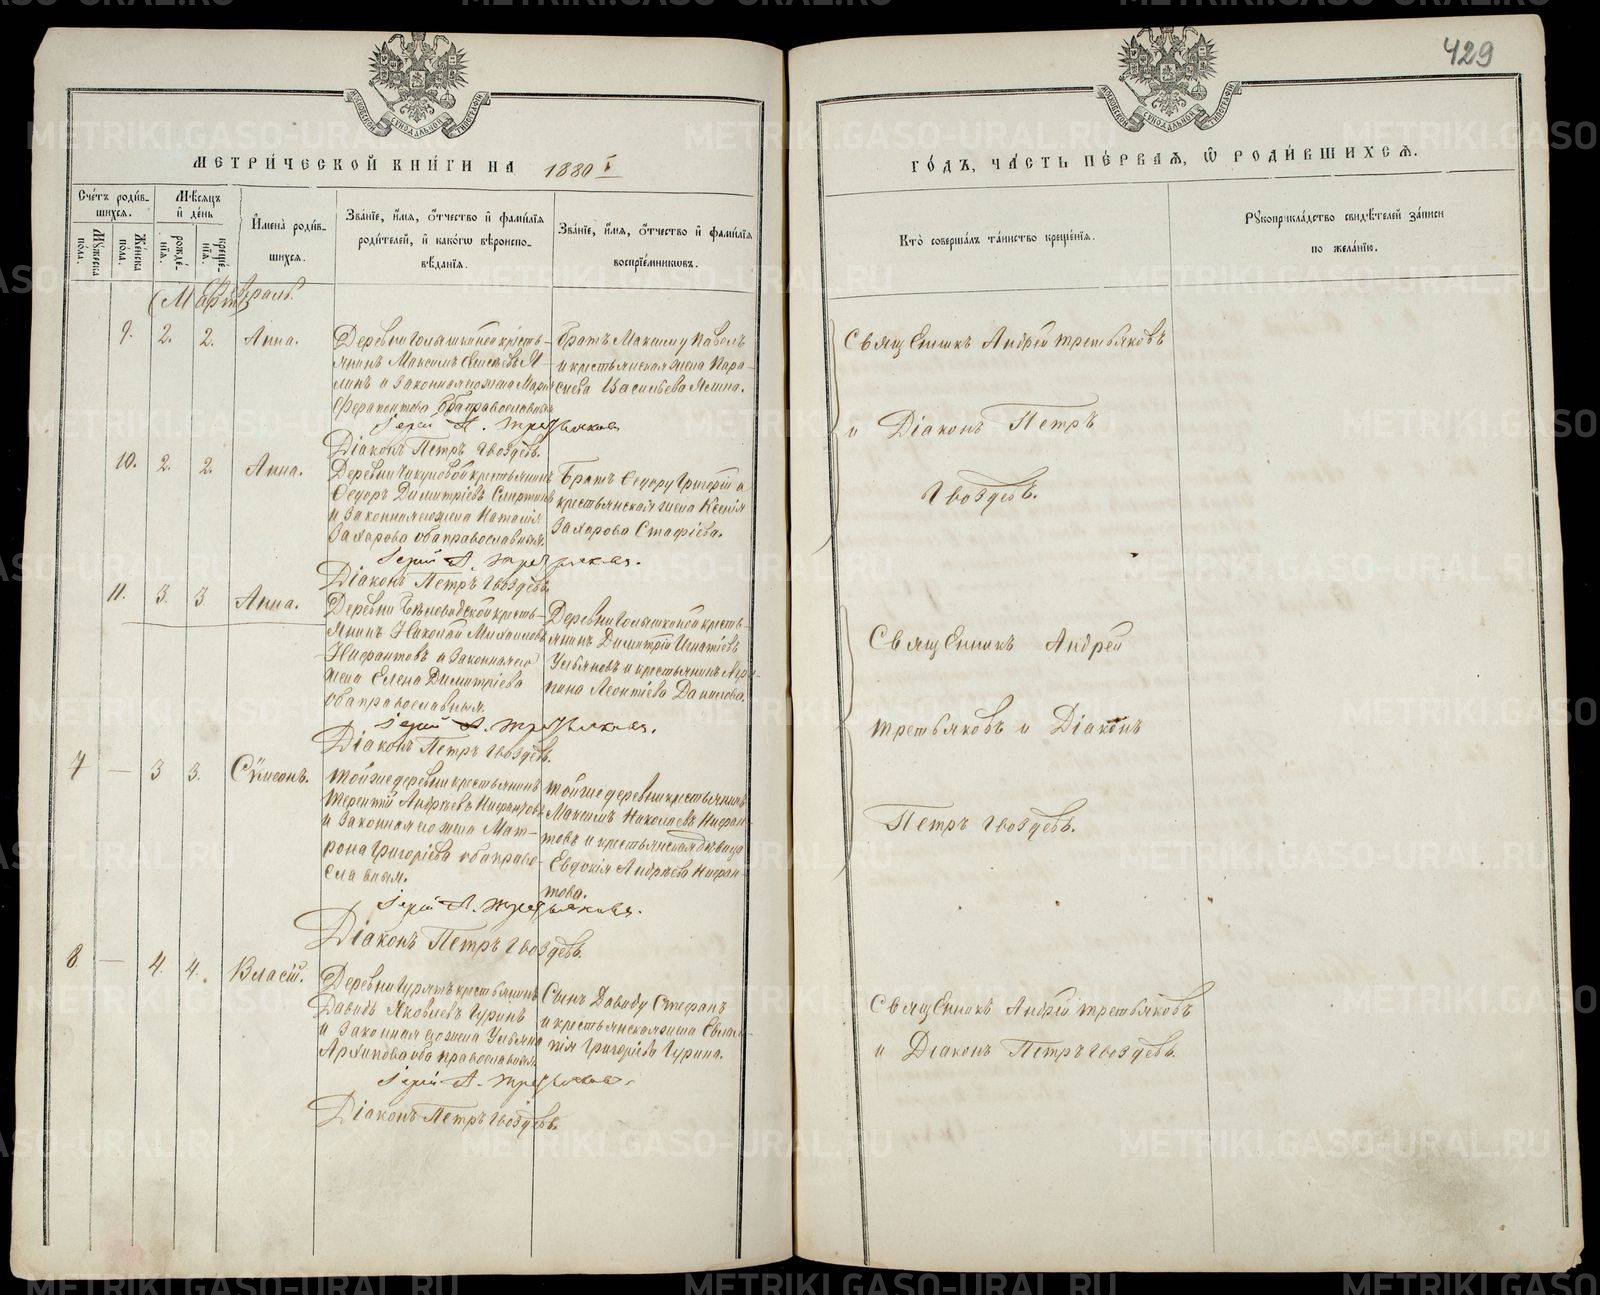 429
МОСКОВСКОЙ СѴНОДАЛЬНОЙ ТИПОГРАФІИ
МОСКОВСКОЙ СѴНОДАЛЬНОЙ ТИПОГРАФІИ
МЕТРИ́ЧЕСКОЙ КНИ́ГИ НА 1880 г.
ГО́ДЪ, ЧА́СТЬ ПЕ́РВАѦ, Ѡ҆ РОДИ́ВШИХСѦ.
Сче́тъ роди́в-
шихсѧ.
Му́жеска
по́ла.
Же́нска
по́ла.
Мѣ́сѧцъ
и҆ де́нь
рожде́-
нїѧ.
креще́-
нїѧ.
И҆мена̀ роди́в-
шихсѧ.
Зва́нїе, и҆́мѧ, ѻ҆́тчество и҆ фами́лїѧ
роди́телей, и҆ како́гѡ вѣроиспо-
вѣ́данїѧ.
Зва́нїе, и҆́мѧ, ѻ҆́тчество и҆ фами́лїѧ
воспрїе́мникѡвъ.
Кто̀ соверша́лъ та́инство креще́нїѧ.
Рꙋкоприкла́дство свидѣ́телей за́писи
по жела́нїю.
Февраль.
(Мартъ)
9. 2. 2. Анна.
Деревни Голышкиной кресть-
янинъ Максимъ
и законная его жена Мари
оба православныя
Іерей А. Третьяковъ
Діаконъ Петръ Гвоздевъ.
Братъ Максиму Павелъ
и крестьянская жена Пара-
скева Васильева Ялина.
Священникъ Андрей Третьяковъ
и Діаконъ Петръ
Гвоздевъ.
10. 2. 2. Анна.
Деревни крестьянинъ
Ѳедоръ Димитріевъ
и законная его жена Наталія
Захарова оба православныя.
Іерей А. Третьяковъ.
Діаконъ Петръ Гвоздевъ.
Братъ Ѳедору Григорій и
крестьянская жена Ксенія
Захарова Стафіева.
11. 3. 3. Анна.
Деревни кресть-
янинъ Николай Михаиловъ
Нифантовъ и законная его
жена Елена Димитріева
оба православныя.
Іерей А. Третьяковъ.
Діаконъ Петръ Гвоздевъ.
Деревни Голышкиной кресть-
янинъ Димитрій Игнатіевъ
Ульяновъ и
Леонтіева Данилова.
Священникъ Андрей
Третьяковъ и Діаконъ
Петръ Гвоздевъ.
7 — 3 3. Сѵмеонъ.
Той же деревни крестьянинъ
Терентій Андреевъ Нифантовъ
и законная его жена Мат-
рона Григоріева оба право-
славныя.
Іерей А. Третьяковъ.
Діаконъ Петръ Гвоздевъ.
Той же деревни крестьянинъ
Максимъ Николаевъ Нифан-
товъ и крестьянская дѣвица
Евдокія Андреева Нифан-
това.
8. — 4. 4. Власій.
Деревни крестьянинъ
Давидъ Яковлевъ Гуринъ
и законная его жена Ульяна
Архипова оба православныя.
Іерей А. Третьяковъ.
Діаконъ Петръ Гвоздевъ.
Сынъ Давиду Стефанъ
и крестьянская жена Евлам-
пія Григоріева Гурина.
Священникъ Андрей Третьяковъ
и Діаконъ Петръ Гвоздевъ.
METRIKI.GASO-URAL.RU